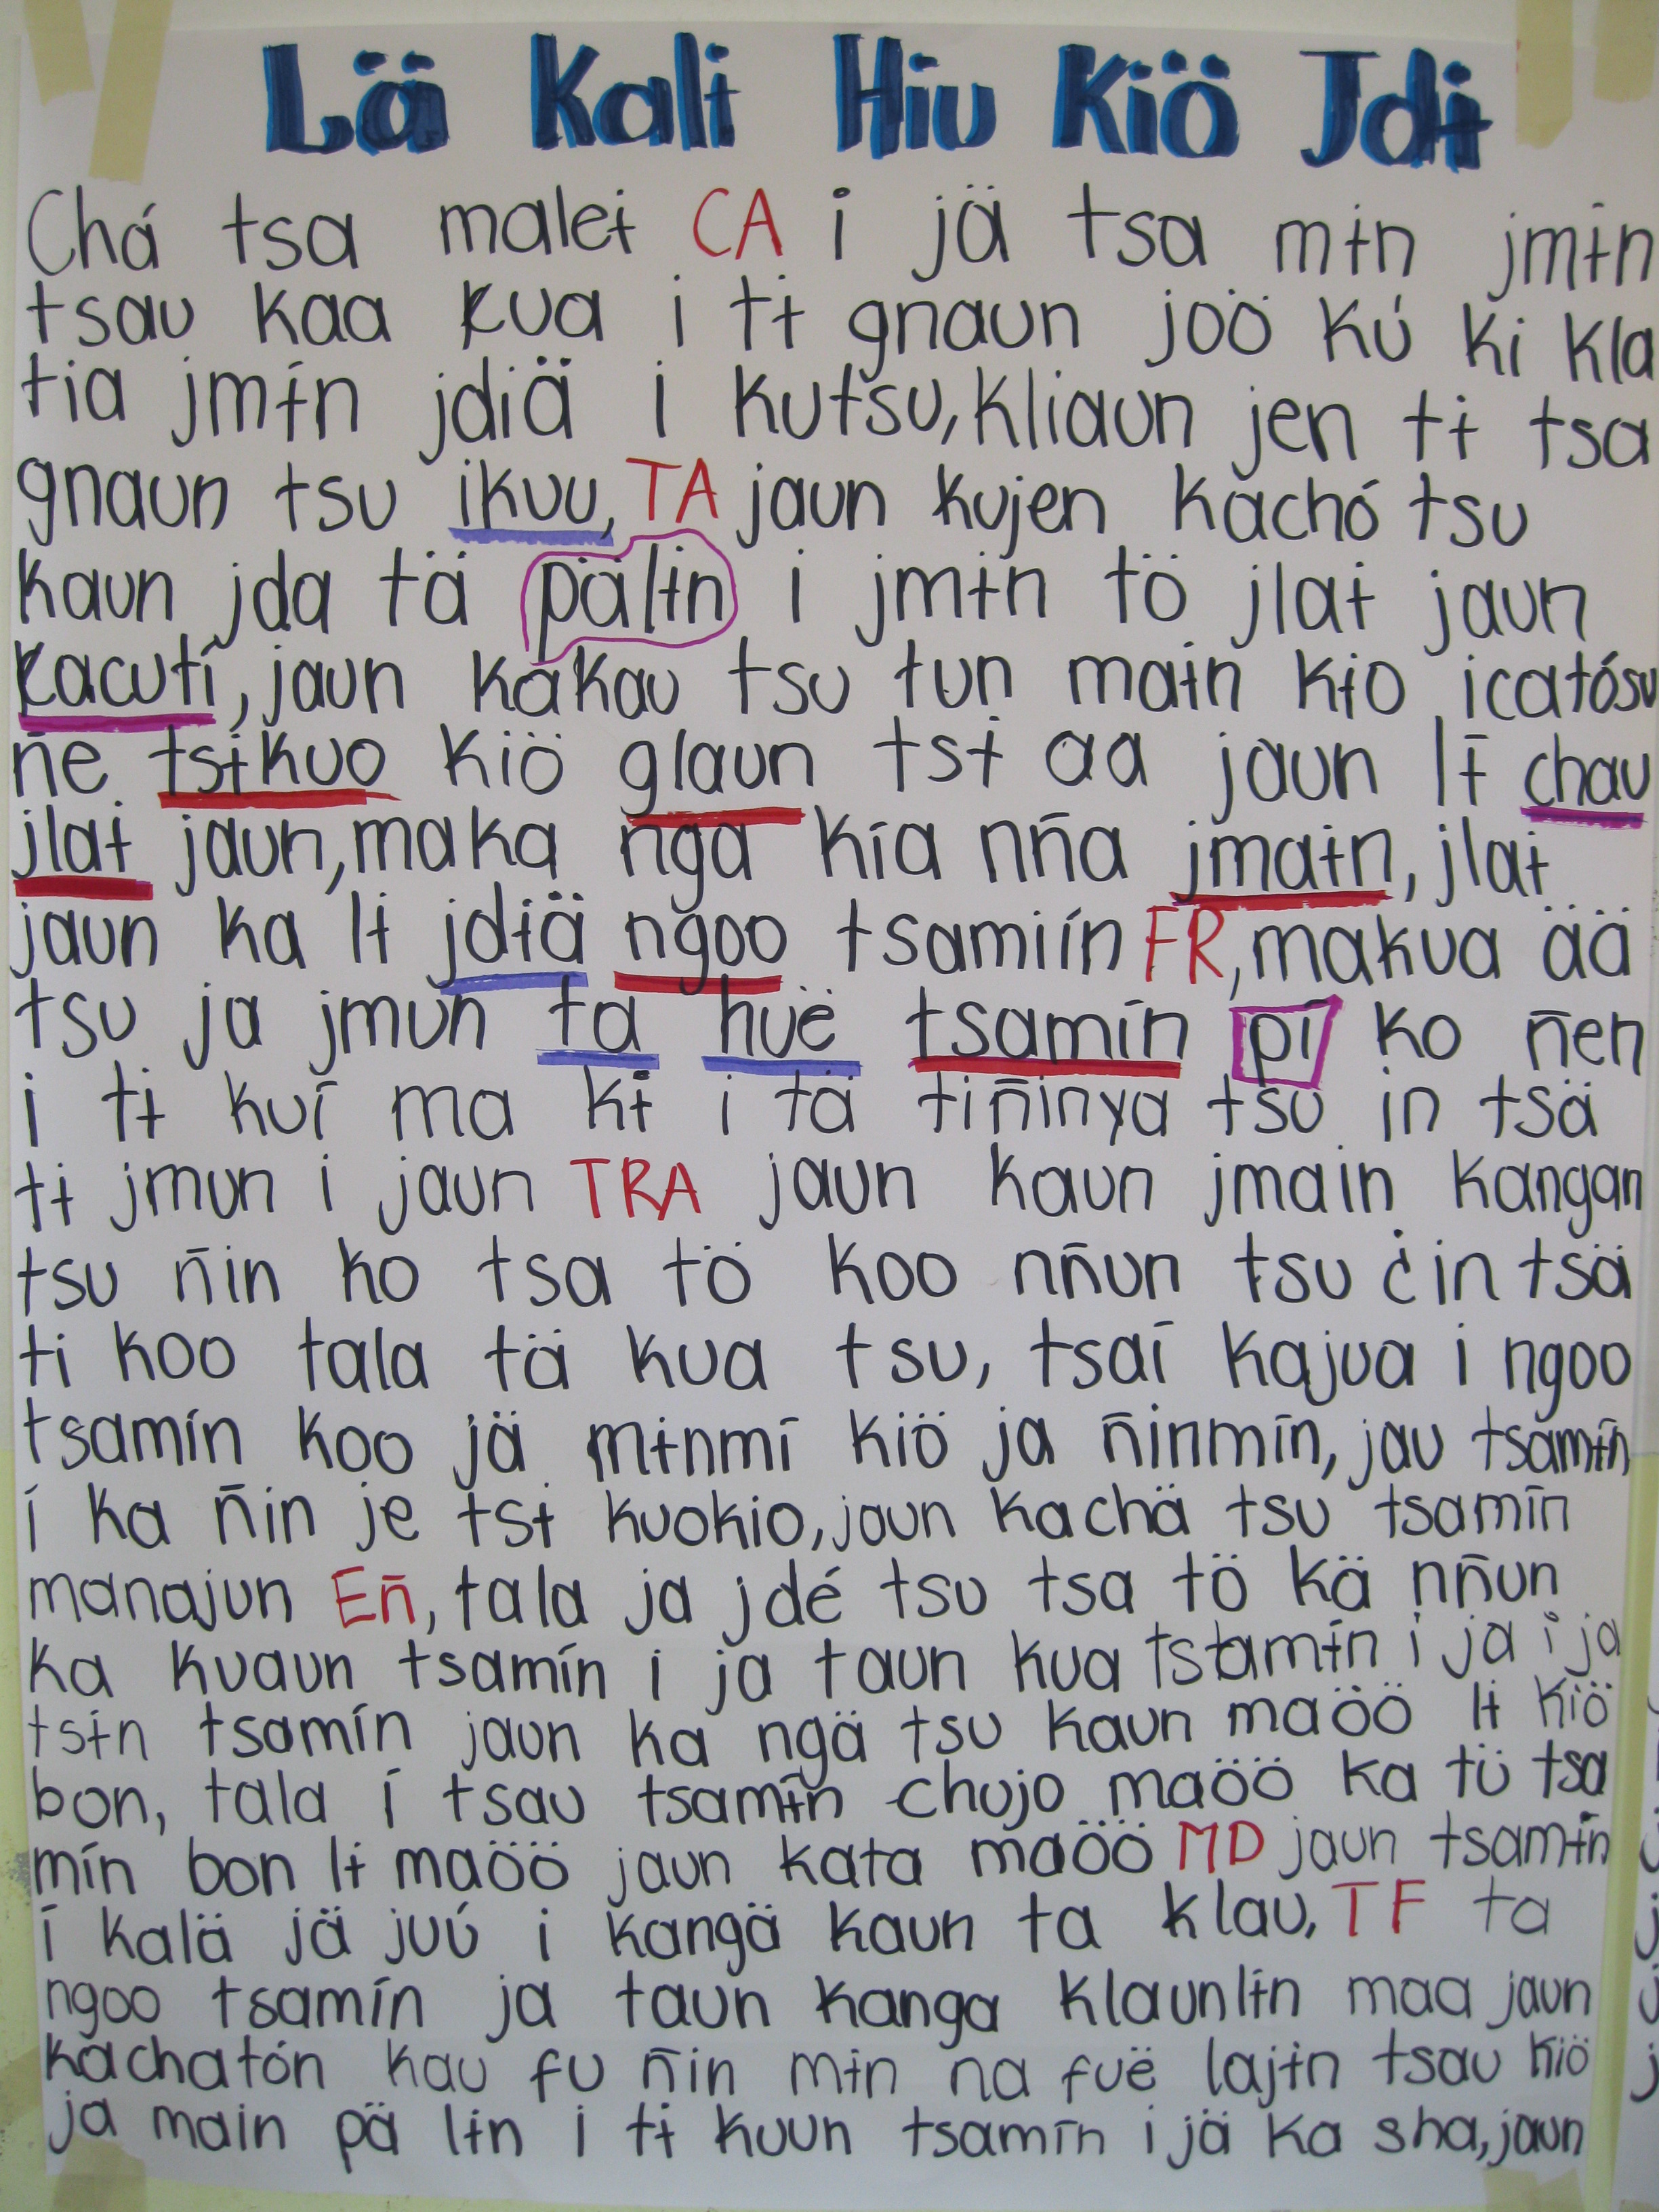 Lä Kalɨ Hiu Kiö Jdɨ
Chá tsa maleɨ CA i jä tsa mɨn jmɨn
tsau kaa kua i tɨ gnaun joö kú ki kla
tia jmɨ́n jdiä i kutsu, kliaun jen tɨ tsa
gnaun tsu ikuu, TA jaun kujen kachó tsu
kaun jda tä pälɨn i jmɨn tö jlaɨ jaun
kacutí, jaun kakau tsu tun maɨn kɨo icatósu
ñe tsɨkuo kiö glaun tsɨ aa jaun lɨ̄ chau
jlaɨ jaun, maka nga kía nña jmaɨn, jlaɨ
jaun ka lɨ jdɨä ngoo tsamiín FR, makua ää
tsu ja jmun ta huë tsamīn pī ko ñen
i tɨ kuī ma kɨ i tä tiñinya tsu in tsä
tɨ jmun i jaun TRA jaun kaun jmain kangan
tsu ñin ko tsa tö koo nñun tsu ċin tsä
ti koo tala tä kua tsu, tsaī kajua i ngoo
tsamín koo jä mɨnmī kiö ja ñinmīn, jau tsamɨ̄n
í ka ñin je tsɨ kuokio, jaun kachä tsu tsamīn
manajun Eñ, tala ja jdé tsu tsa tö kä nñun
ka kuaun tsamín i ja taun kua tstamɨ́n i ja i ja
tsɨn tsamín jaun ka ngä tsu kaun maöö lɨ kiö
bon, tala í tsau tsamɨ̄n chujo maöö ka tü tsa
mín bon lɨ maöö jaun kata maöö MD jaun tsamɨn
ī kalä jä juú i kangä kaun ta klau, TF ta
ngoo tsamín ja taun kanga klaunlɨn maa jaun
kachatón kau fu ñin mɨn na fuë lajɨn tsau kiö
ja main pä lɨn i tɨ kuun tsamīn i jä ka sha, jaun